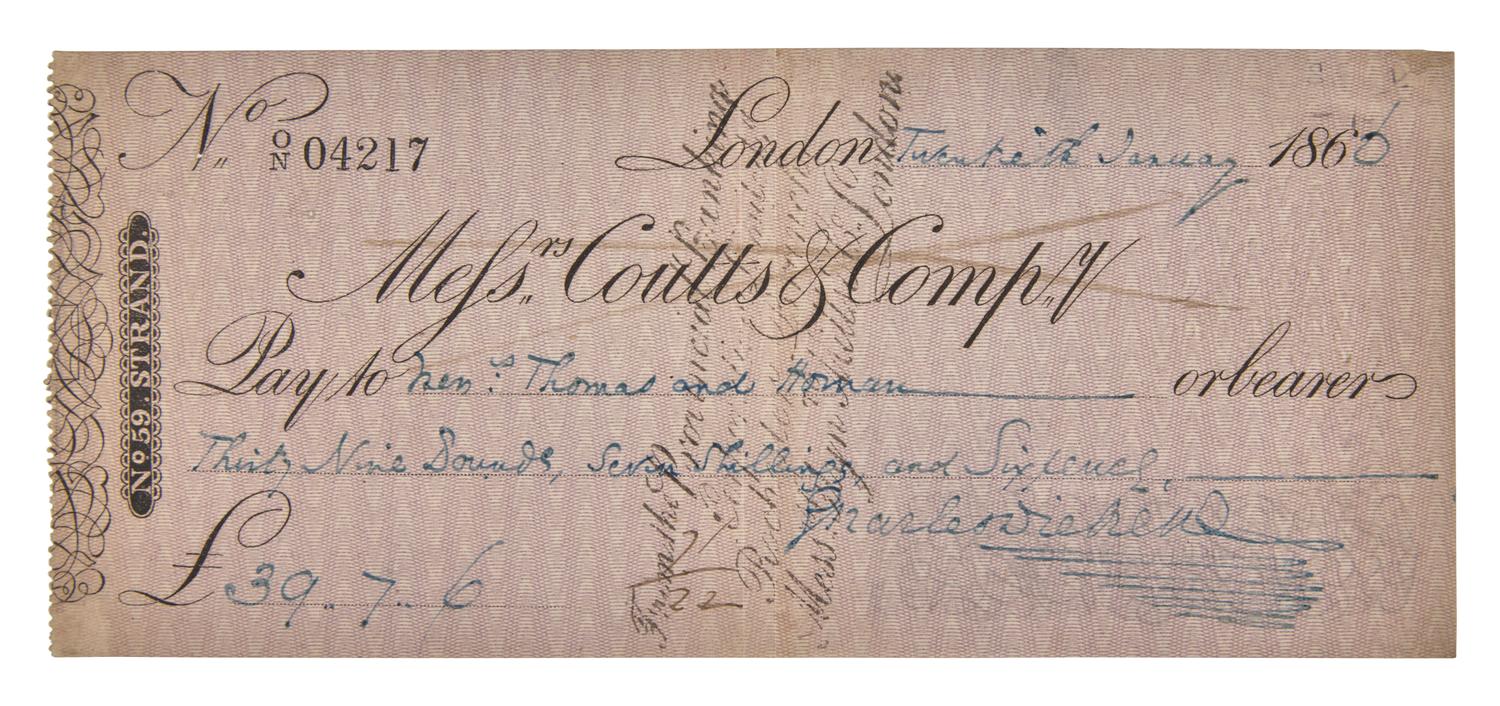 No. O/N 04217
London Twentieth January 1866
No. 59. STRAND.
Messrs. Coutts & Compy.
Pay to Messrs. Thomas and Homan or bearer
Thirty Nine Pounds, Seven Shillings, and Sixpence.
Charles Dickens
£ 39.. 7.. 6
From the Provincial Banking
Rochester
Mess. London
22